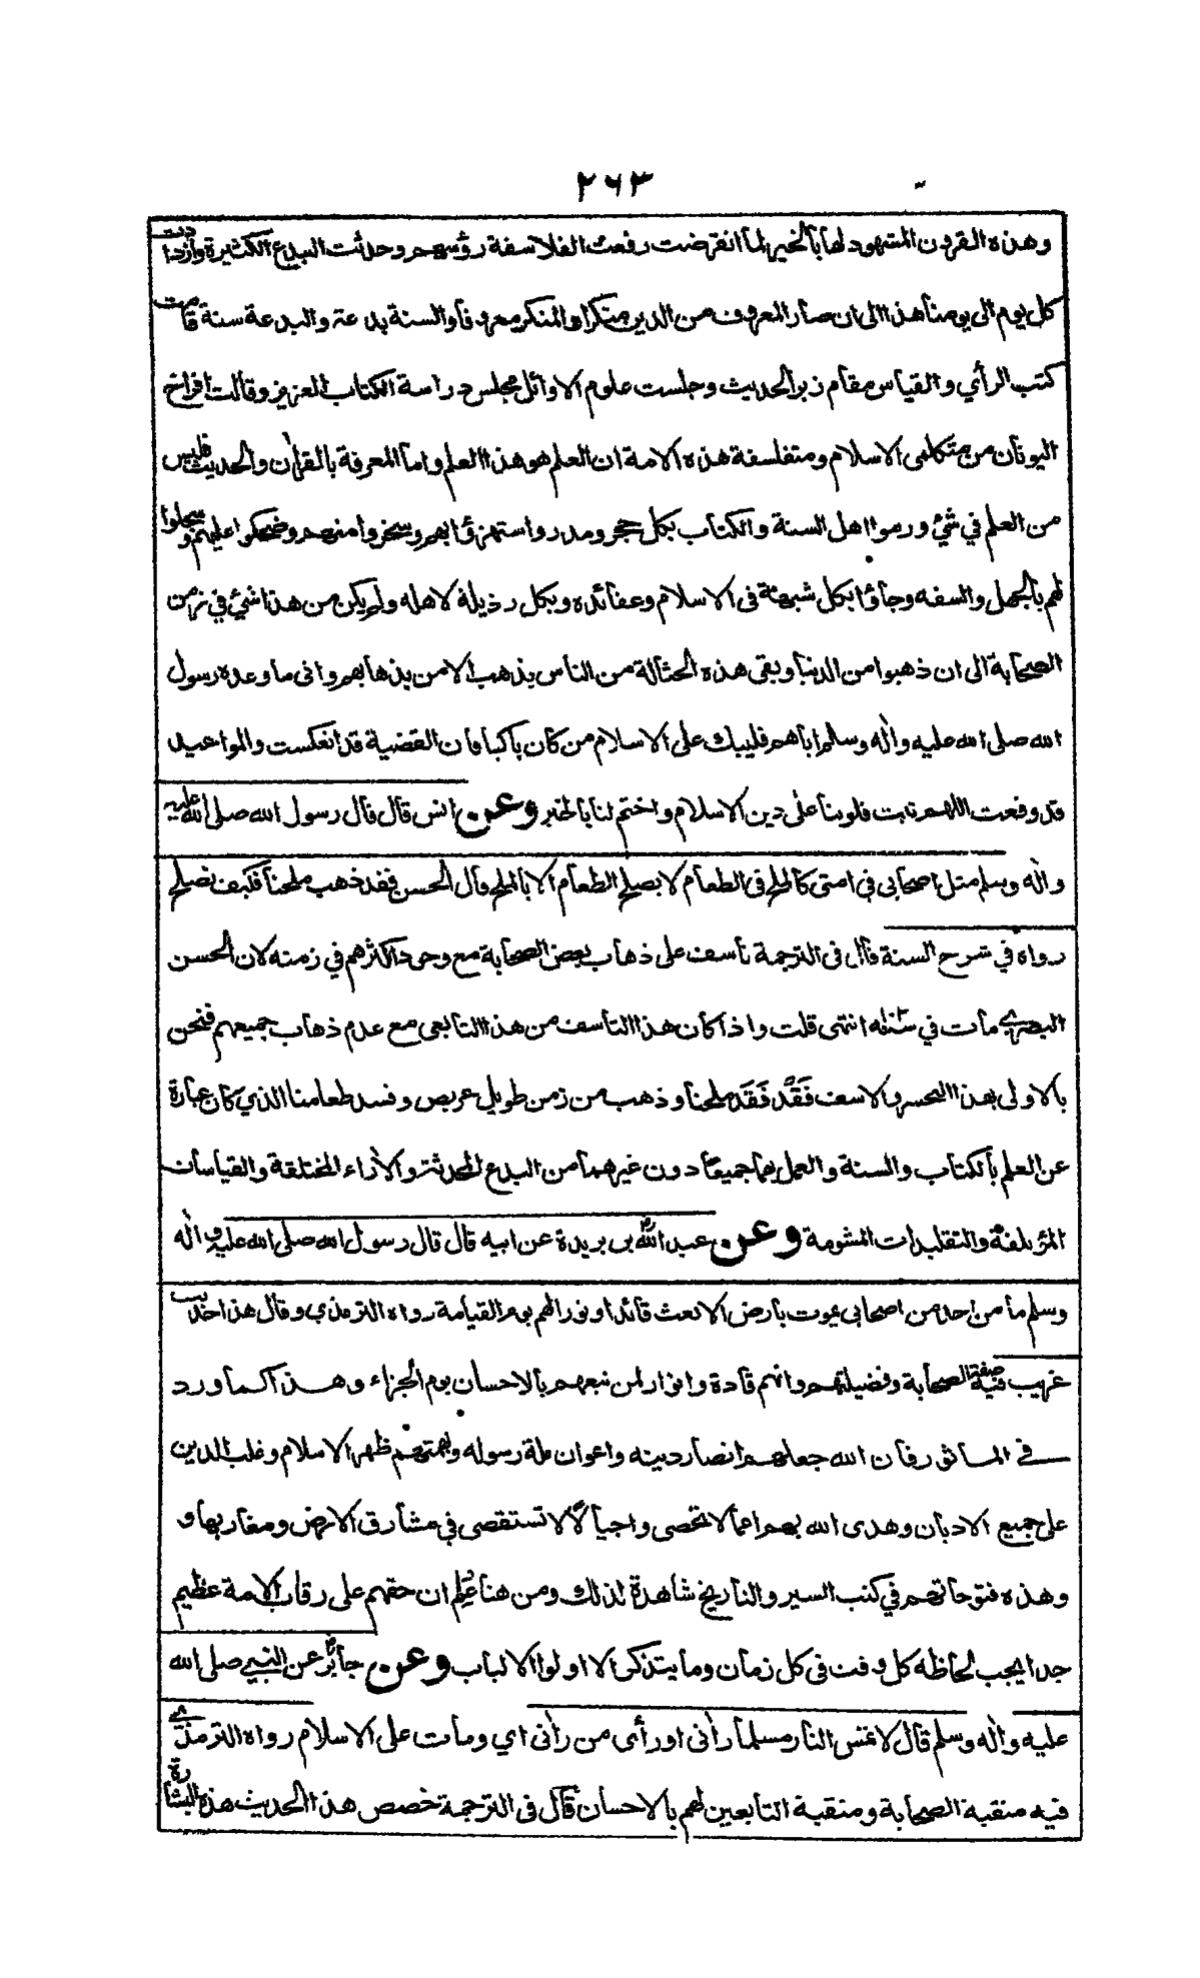 ٢٦٣
وهذه القرون المشهود لها بالخير لما انقرضت رفعت الفلاسفة رؤسهم وحدثت البدع الكثيرة وازدادت
كل يوم الى يومنا هذا الى ان صار المعروف من الدين منكرا والمنكر معروفا والسنة بدعة والبدعة سنة قامت
كتب الرأي والقياس مقام زبر الحديث وجلست علوم الاوائل مجلس دراسة الكتاب العزيز وقالت افراخ
اليونان من متكلمى الاسلام ومتفلسفة هذه الامة ان العلم هو هذا العلم واما المعرفة بالقراٰن والحديث فليس
من العلم في شئ ورموا اهل السنة والكتاب بكل حجر ومدر واستهزؤا بهم وسخروا منهم وضحكوا عليهم وسجلوا
لهم بالجهل والسفه وجاؤا بكل شبهة فى الاسلام وعقائده وبكل رذيلة لاهله ولم يكن من هذا شئ في زمن
الصحابة الى ان ذهبوا من الدنيا وبقى هذه الحثالة من الناس يذهب الامن بذهابهم واتى ما وعده رسول
الله صلى الله عليه واٰله وسلم اياهم فليبك على الاسلام من كان باكيا فان القضية قد انعكست والمواعيد
قد وقعت اللهم ثابت قلوبنا على دين الاسلام واختم لنا بالخير وعن انس قال قال رسول الله صلى الله عليه
واٰله وسلم مثل اصحابى في امتى كالملح فى الطعام لا يصلح الطعام الا بالملح قال الحسن فقد ذهب ملحنا فكيف نصلح
رواه في شرح السنة قال فى الترجمة تأسف على ذهاب بعض الصحابة مع وجود اكثرهم في زمنه لان الحسن
البصري مات في سنة ١١٠ انتهى قلت واذا كان هذا التاسف من هذا التابعى مع عدم ذهاب جميعهم فنحن
بالاولى بهذا التحسر والاسف فَقَدْ فَقَدَ ملحنا وذهب من زمن طويل عريض وفسد طعامنا الذي كان عبارة
عن العلم بالكتاب والسنة والعمل بهما جميعًا دون غيرهما من البدع المحدثة والاٰراء المختلقة والقياسات
المزيلفة والتقليدات المشومة وعن عبد الله بن بريدة عن ابيه قال قال رسول الله صلى الله عليه واٰله
وسلم ما من احد من اصحابى يموت بارض الا بعث قائدا ونورا لهم يوم القيامة رواه الترمذي وقال هذا حديث
غريب فيه صفة الصحابة وفضيلتهم وانهم قادة وانوار لمن تبعهم بالاحسان يوم الجزاء وهذا كما ورد
في المسائر فان الله جعلهم انصار دينه واعوان ملة رسوله وبهمتهم ظهر الاسلام وغلب الدين
على جميع الاديان وهدى الله بهم امما لا تحصى واجيالًا لا تستقصى في مشارق الارض ومغاربها و
وهذه فتوحاتهم في كتب السير والتاريخ شاهدة لذلك ومن هنا عُلِم ان حقهم على رقاب الامة عظيم
جدا يجب لحاظه كل وقت فى كل زمان وما يتذكر الا اولوا الالباب وعن جابر عن النبي صلى الله
عليه واٰله وسلم قال لا تمس النار مسلما راٰنى او رأى من راٰنى اي ومات على الاسلام رواه الترمذي
فيه منقبة الصحابة ومنقبة التابعين لهم بالاحسان قال فى الترجمة خصص هذا الحديث هذه البشارة